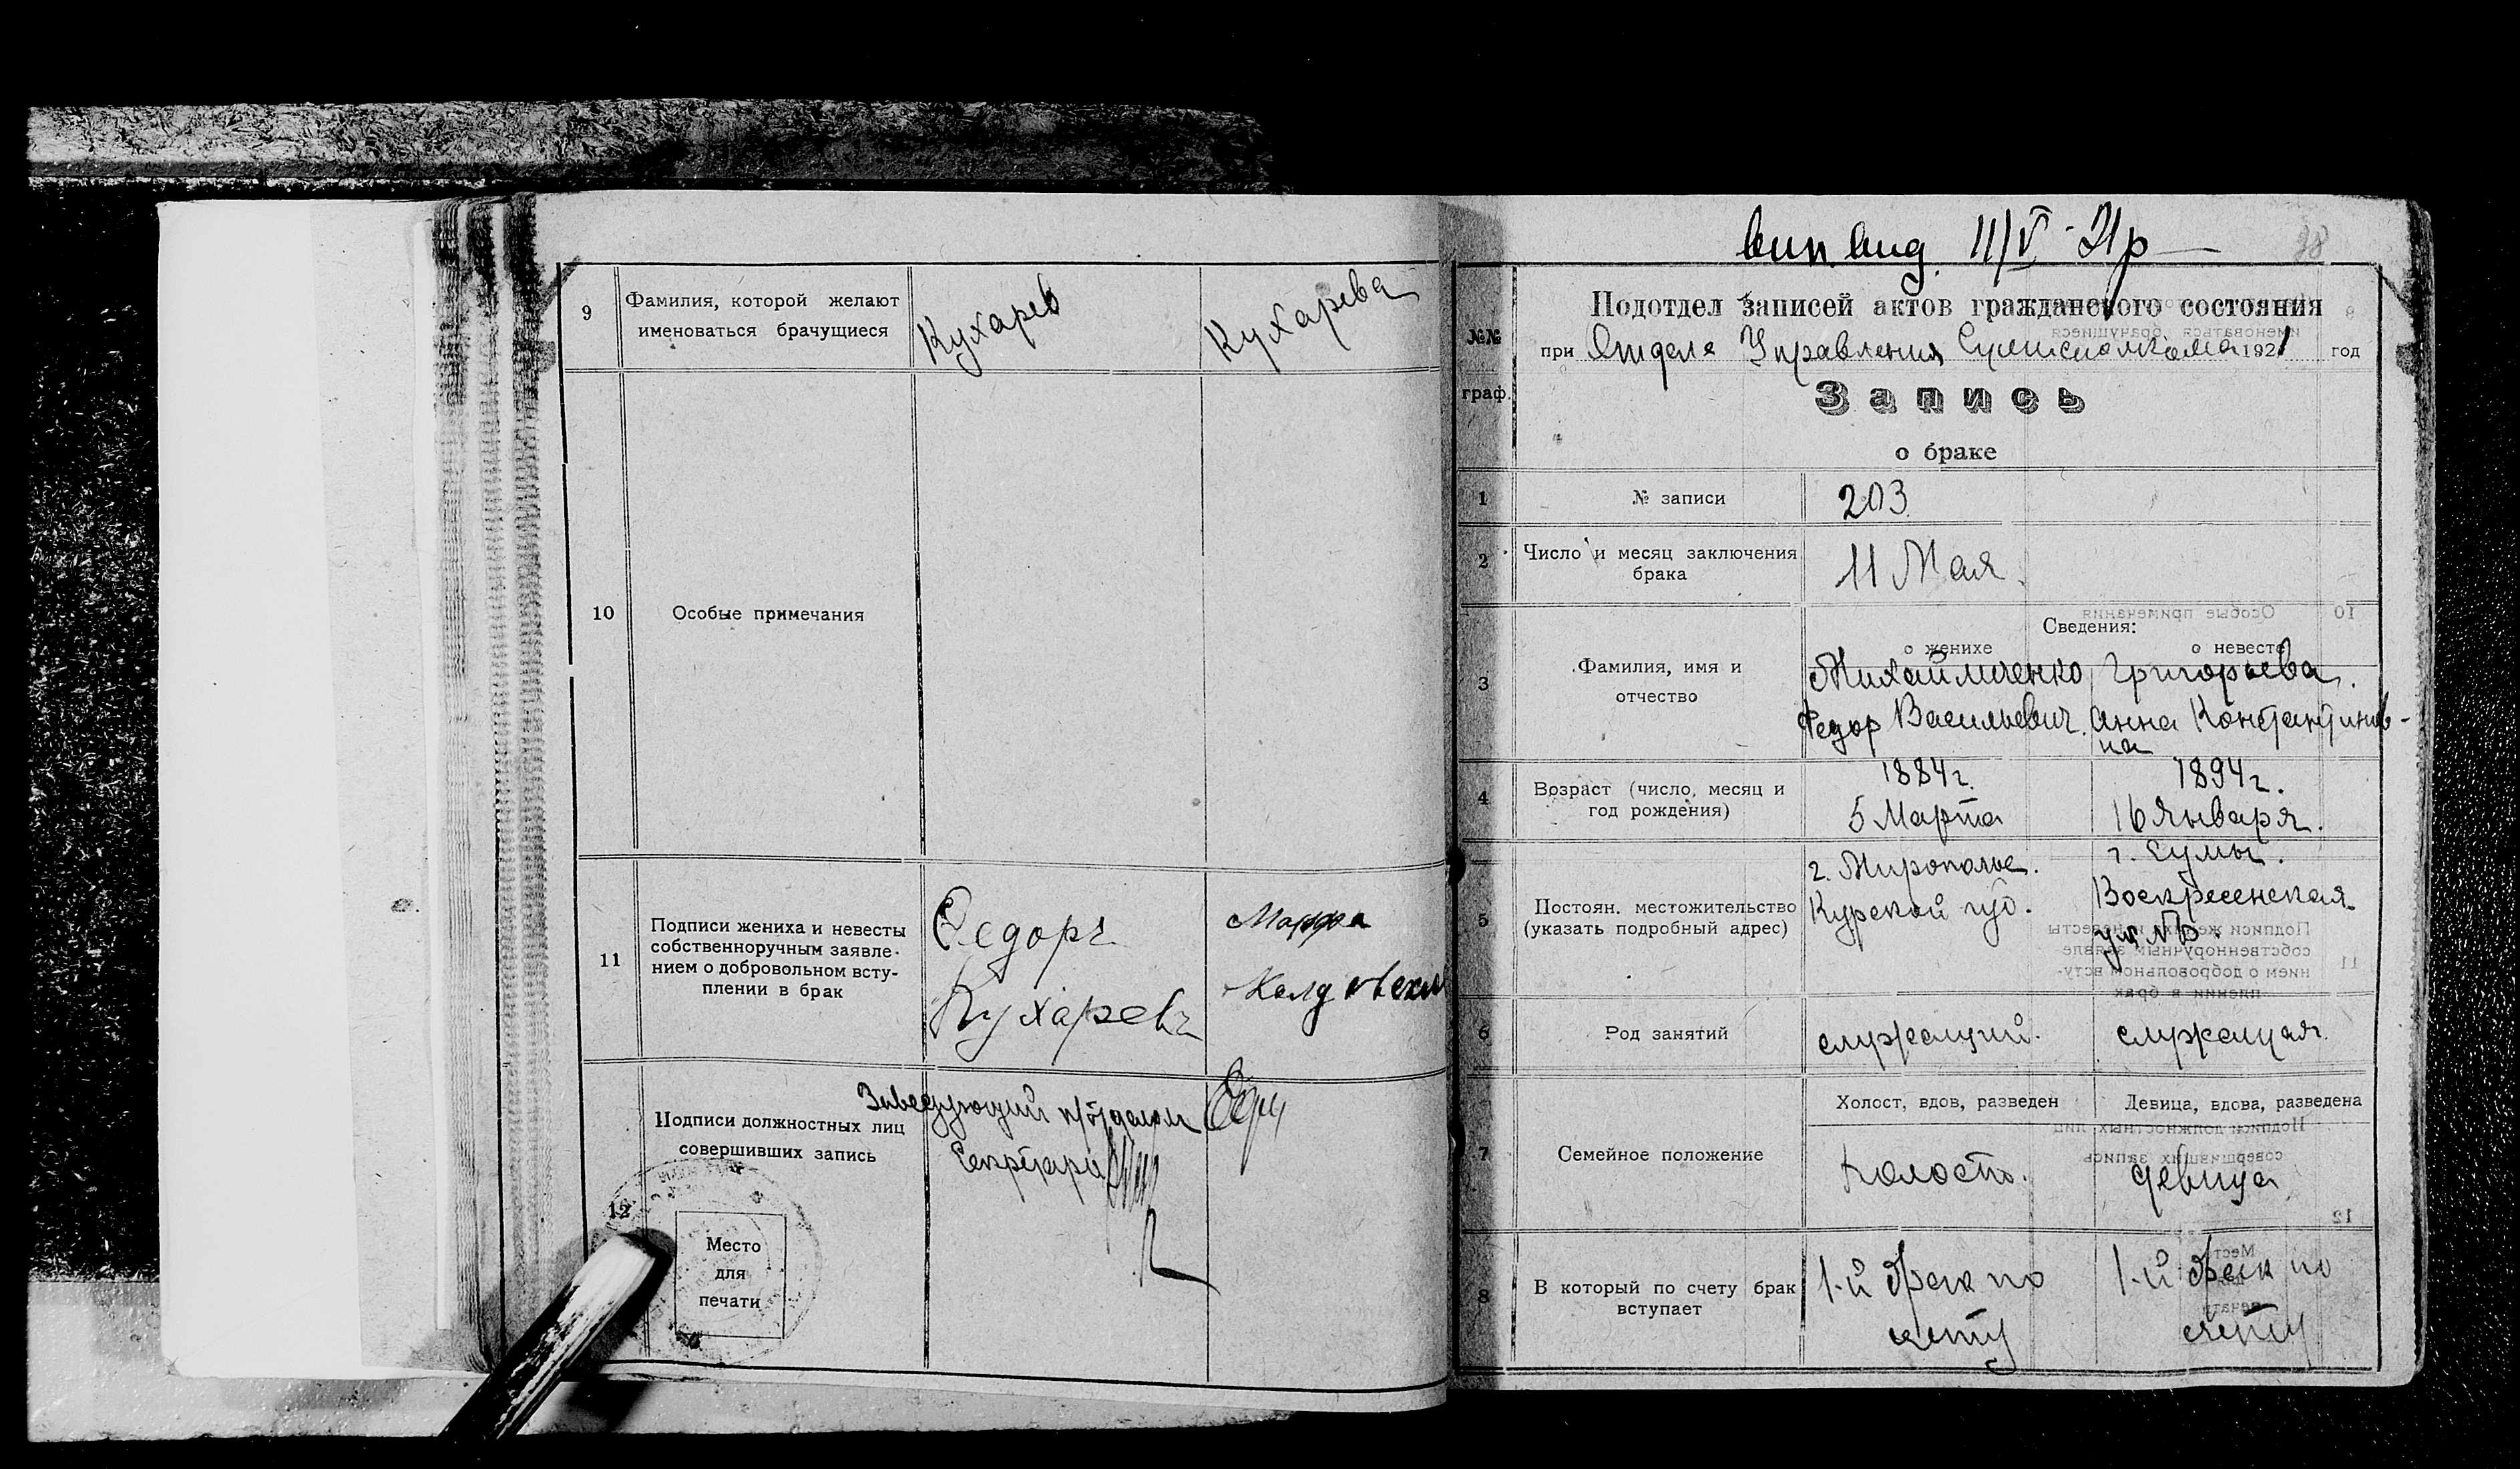 9
Фамилия, которой желают
именоваться брачущиеся
Кухарев
Кухарева
10
Особые примечания
11
Подписи жениха и невесты
собственноручным заявле-
нием о добровольном всту-
плении в брак
Федоръ
Кухаревъ
Марфа
12
Подписи должностных лиц
совершивших запись
Заведующий п/отделом
Секретарь
Место
для
печати
вип. вид. 11/V - 21 р
38
№№
граф.
Подотдел записей актов гражданского состояния
при Отделе Управления Сумисполкома 1921 год
Запись
о браке
1
№ записи
203
2
Число и месяц заключения
брака
11 Мая.
Сведения:
о женихе
о невесте
3
Фамилия, имя и
отчество
Михайличенко
Федор Васильевич.
Григорьева.
Анна Константинов-
на
4
Возраст (число, месяц и
год рождения)
1884 г.
5 Марта
1894 г.
16 Января.
5
Постоян. местожительство
(указать подробный адрес)
г. Мирополье.
Курской губ.
г. Сумы.
Воскресенская
6
Род занятий
служащий.
служащая.
7
Семейное положение
Холост, вдов, разведен
Девица, вдова, разведена
Холост.
девица
8
В который по счету брак
вступает
1-й брак по
счету
1-й брак по
счету